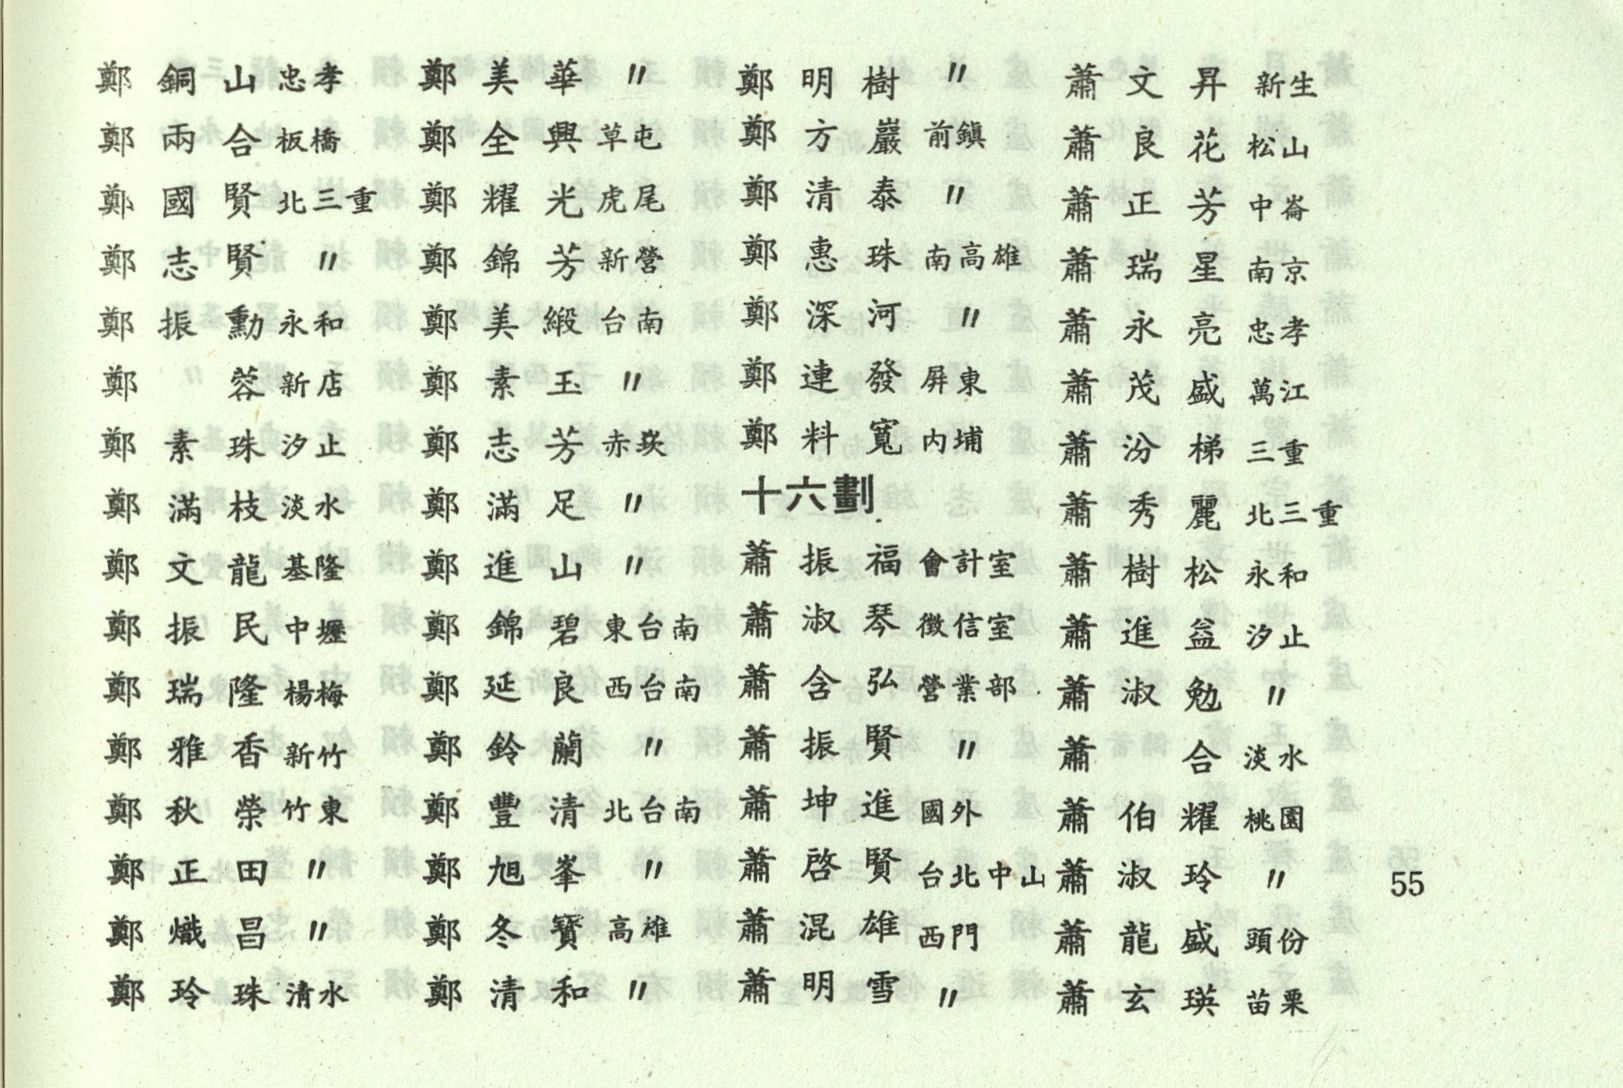 鄭銅山 忠孝
鄭兩合 板橋
鄭國賢 北三重
鄭志賢 〃
鄭振勳 永和
鄭 蓉 新店
鄭素珠 汐止
鄭滿枝 淡水
鄭文龍 基隆
鄭振民 中壢
鄭瑞隆 楊梅
鄭雅香 新竹
鄭秋榮 竹東
鄭正田 〃
鄭熾昌 〃
鄭玲珠 清水
鄭美華 〃
鄭全興 草屯
鄭耀光 虎尾
鄭錦芳 新營
鄭美緞 台南
鄭素玉 〃
鄭志芳 赤崁
鄭滿足 〃
鄭進山 〃
鄭錦碧 東台南
鄭延良 西台南
鄭鈴蘭 〃
鄭豐清 北台南
鄭旭峯 〃
鄭冬寶 高雄
鄭清和 〃
鄭明樹 〃
鄭方巖 前鎮
鄭清泰 〃
鄭惠珠 南高雄
鄭深河 〃
鄭連發 屏東
鄭料寬 內埔
十六劃
蕭振福 會計室
蕭淑琴 徵信室
蕭含弘 營業部
蕭振賢 〃
蕭坤進 國外
蕭啓賢 台北中山
蕭混雄 西門
蕭明雪 〃
蕭文昇 新生
蕭良花 松山
蕭正芳 中崙
蕭瑞星 南京
蕭永亮 忠孝
蕭茂盛 萬江
蕭汾梯 三重
蕭秀麗 北三重
蕭樹松 永和
蕭進益 汐止
蕭淑勉 〃
蕭 合 淡水
蕭伯耀 桃園
蕭淑玲 〃
蕭龍盛 頭份
蕭玄瑛 苗栗
55